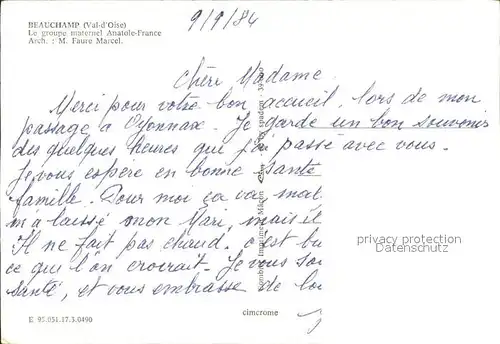 BEAUCHAMP (Val-d'Oise)
Le groupe maternel Anatole-France
Arch. : M. Faure Marcel.
9/9/84
Chère Madame
Merci pour votre bon accueil, lors de mon
passage a Oyonnax. Je garde un bon souvenir
des quelques heures que j'ai passé avec vous.
Je vous espère en bonne santé
famille. Pour moi ça va, mal
m'a laissé mon Mari, mais il
Il ne fait pas chaud. c'est bu
ce qui l'on croirait. Je vous sou
Santé, et vous embrasse de
privacy protection
Datenschutz
cimcrome
E 95.051.17.3.0490
Combier Imprimeur Mâcon